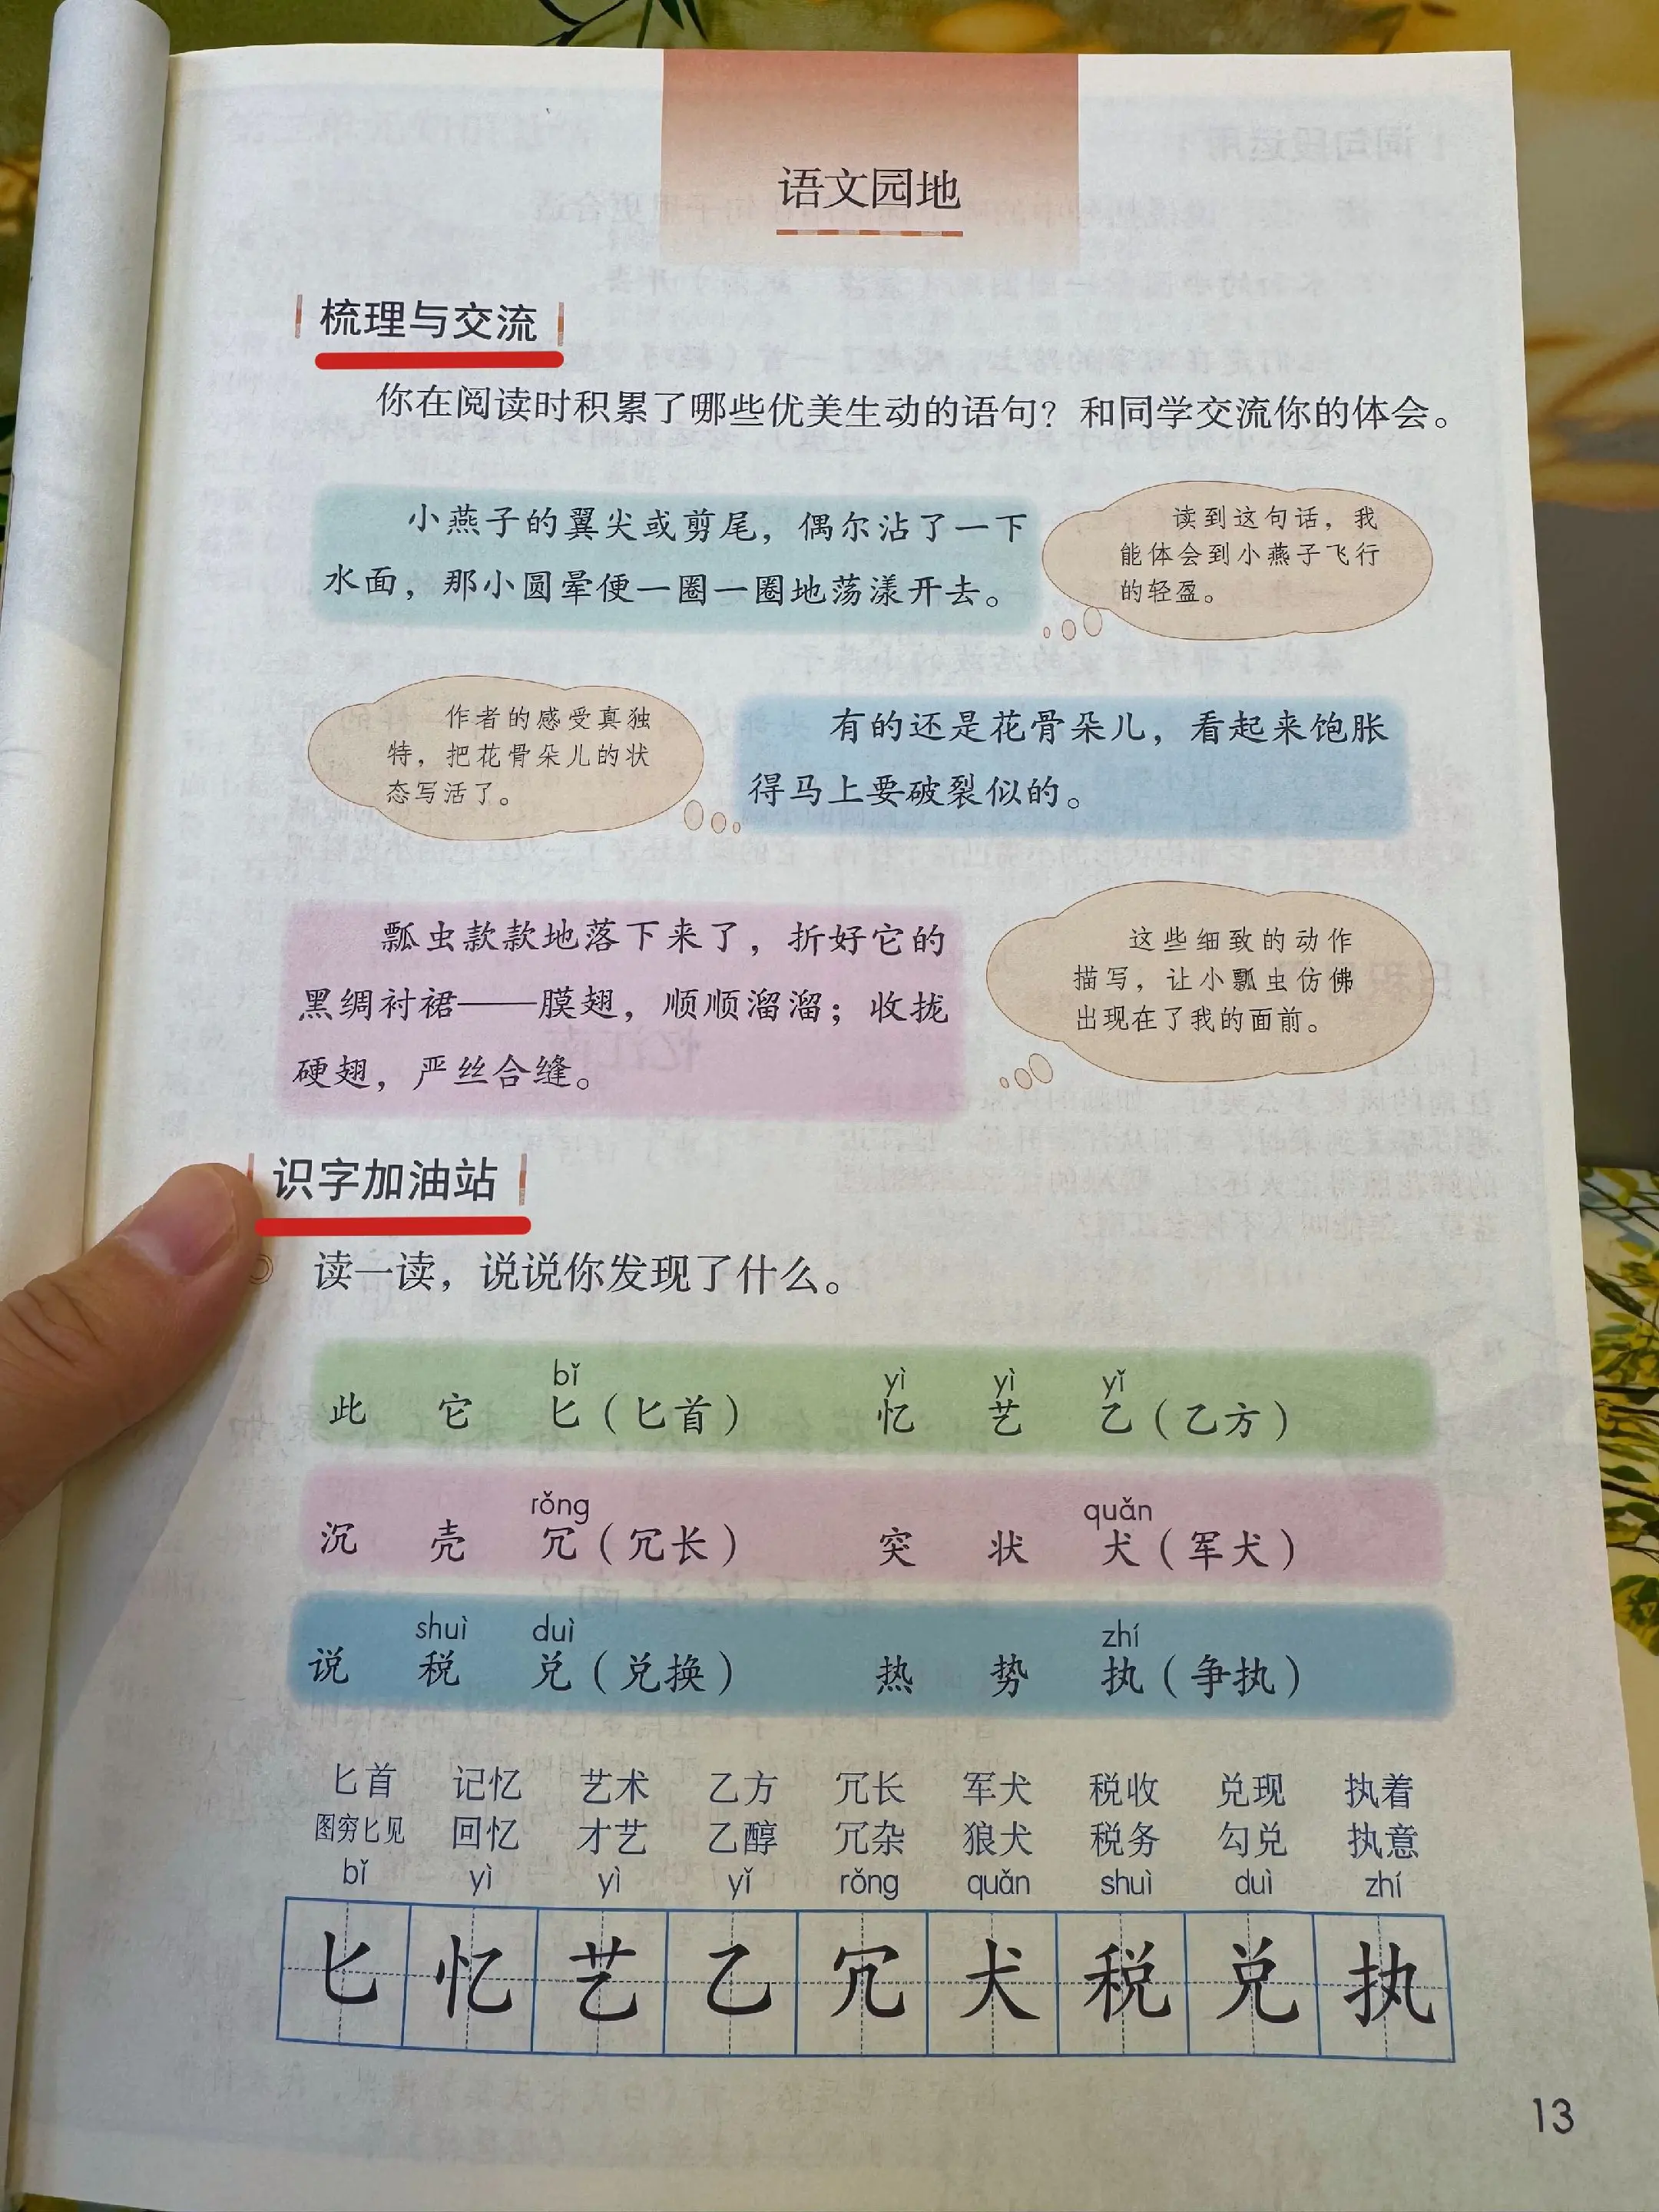 语文园地
梳理与交流
你在阅读时积累了哪些优美生动的语句？和同学交流你的体会。
小燕子的翼尖或剪尾，偶尔沾了一下
水面，那小圆晕便一圈一圈地荡漾开去。
读到这句话，我
能体会到小燕子飞行
的轻盈。
作者的感受真独
特，把花骨朵儿的状
态写活了。
有的还是花骨朵儿，看起来饱胀
得马上要破裂似的。
瓢虫款款地落下来了，折好它的
黑绸衬裙——膜翅，顺顺溜溜；收拢
硬翅，严丝合缝。
这些细致的动作
描写，让小瓢虫仿佛
出现在了我的面前。
识字加油站
读一读，说说你发现了什么。
bǐ yì yì yǐ
此 它 匕（匕首） 忆 艺 乙（乙方）
rǒng quǎn
沉 壳 冗（冗长） 突 状 犬（军犬）
shuì duì zhí
说 税 兑（兑换） 热 势 执（争执）
匕首 记忆 艺术 乙方 冗长 军犬 税收 兑现 执着
图穷匕见 回忆 才艺 乙醇 冗杂 狼犬 税务 勾兑 执意
bǐ yì yì yǐ rǒng quǎn shuì duì zhí
匕 忆 艺 乙 冗 犬 税 兑 执
13